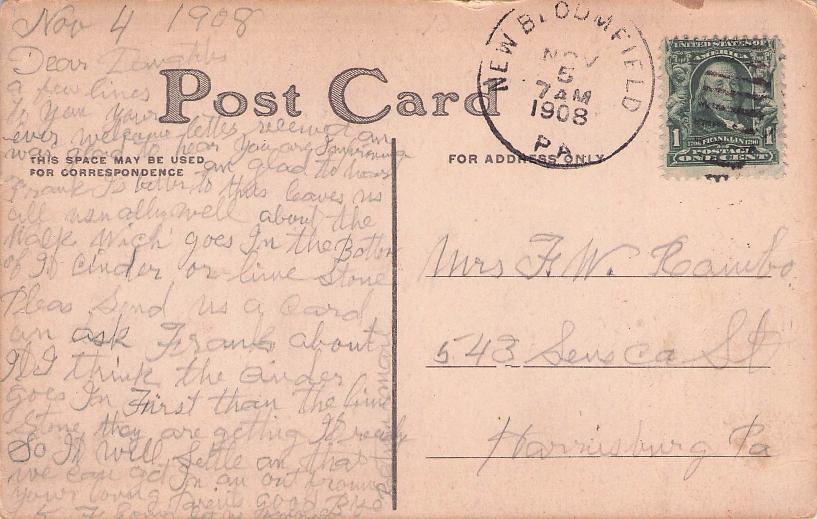 Nov 4 1908
Dear
a few lines
to you your
ever welcome letter received an
was glad to hear you are Improving
am glad to hear
Frank Is better to this leaves us
all usually well about the
Walk Wich goes In the Bottom
of It cinder or lime Stone
Pleas Send us a Card
an ask Frank about
It I think the cinder
goes In First than the lime
Stone they are getting It ready
So It Well Settle an that
we can get In an out around
your loving Parents good By
Post Card
THIS SPACE MAY BE USED
FOR CORRESPONDENCE
FOR ADDRESS ONLY
NEW BLOOMFIELD
NOV
5
7 AM
1908
PA
UNITED STATES OF
AMERICA
1706 FRANKLIN 1790
1 POSTAGE 1
ONE CENT
Mrs F. W. Rambo
543 Seneca St
Harrisburg Pa